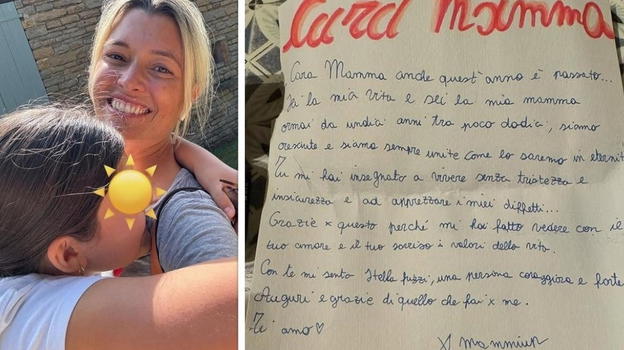 Cara Mamma
Cara Mamma anche quest'anno è passato...
la mia vita e sei la mia mamma
ormai da undici anni tra poco dodici, siamo
cresciute e siamo sempre unite come lo saremo in eternit
Tu mi hai insegnato a vivere senza tristezza e
insicurezza e ad apprezzare i miei difetti...
Grazie x questo perché mi hai fatto vedere con il
tuo amore e il tuo sorriso i valori della vita.
Con te mi sento una persona coraggiosa e forte
Auguri e grazie di quello che fai x me.
Ti amo♡